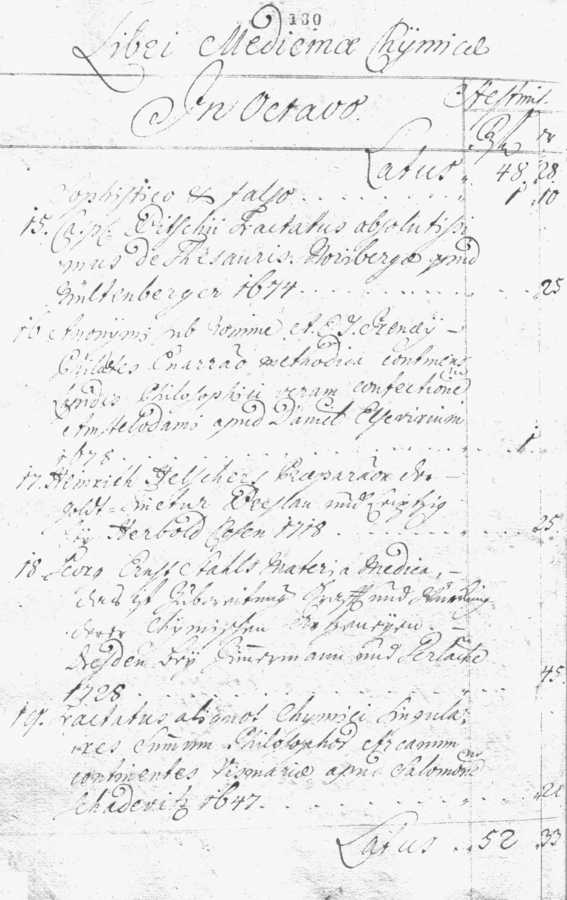 130
Libri Medicinæ Chÿmicæ
In Octavo.
Æstim.
Latus 48 28
Sophistico & falso 1 10
15. Casp. Tractatus absolutissi
mus de Thesauris. Noribergæ apud
Endter 1674 25
16 Anonymi sub nomine
Philaletes Enarratio methodica continens
Lapidis Philosophici veram confectionem
Amstelodami apud Daniel Elsevirium
1678 1
17. Heinrich Præparation der
goldt-Tinctur Breslau und Leipzig
beÿ 1718 25
18 Georg Ernst Stahls Materia Medica,
das ist Zubereitung Krafft und Würkung
derer Chymischen Artzeneÿen
Dresden beÿ Zimmermann und Gerlache
1728 45
19. Tractatus aliquot Chymici singula
res summum Philosophor Arcanum
continentes Vismariæ apud Salomonem
1647
Latus 52 33